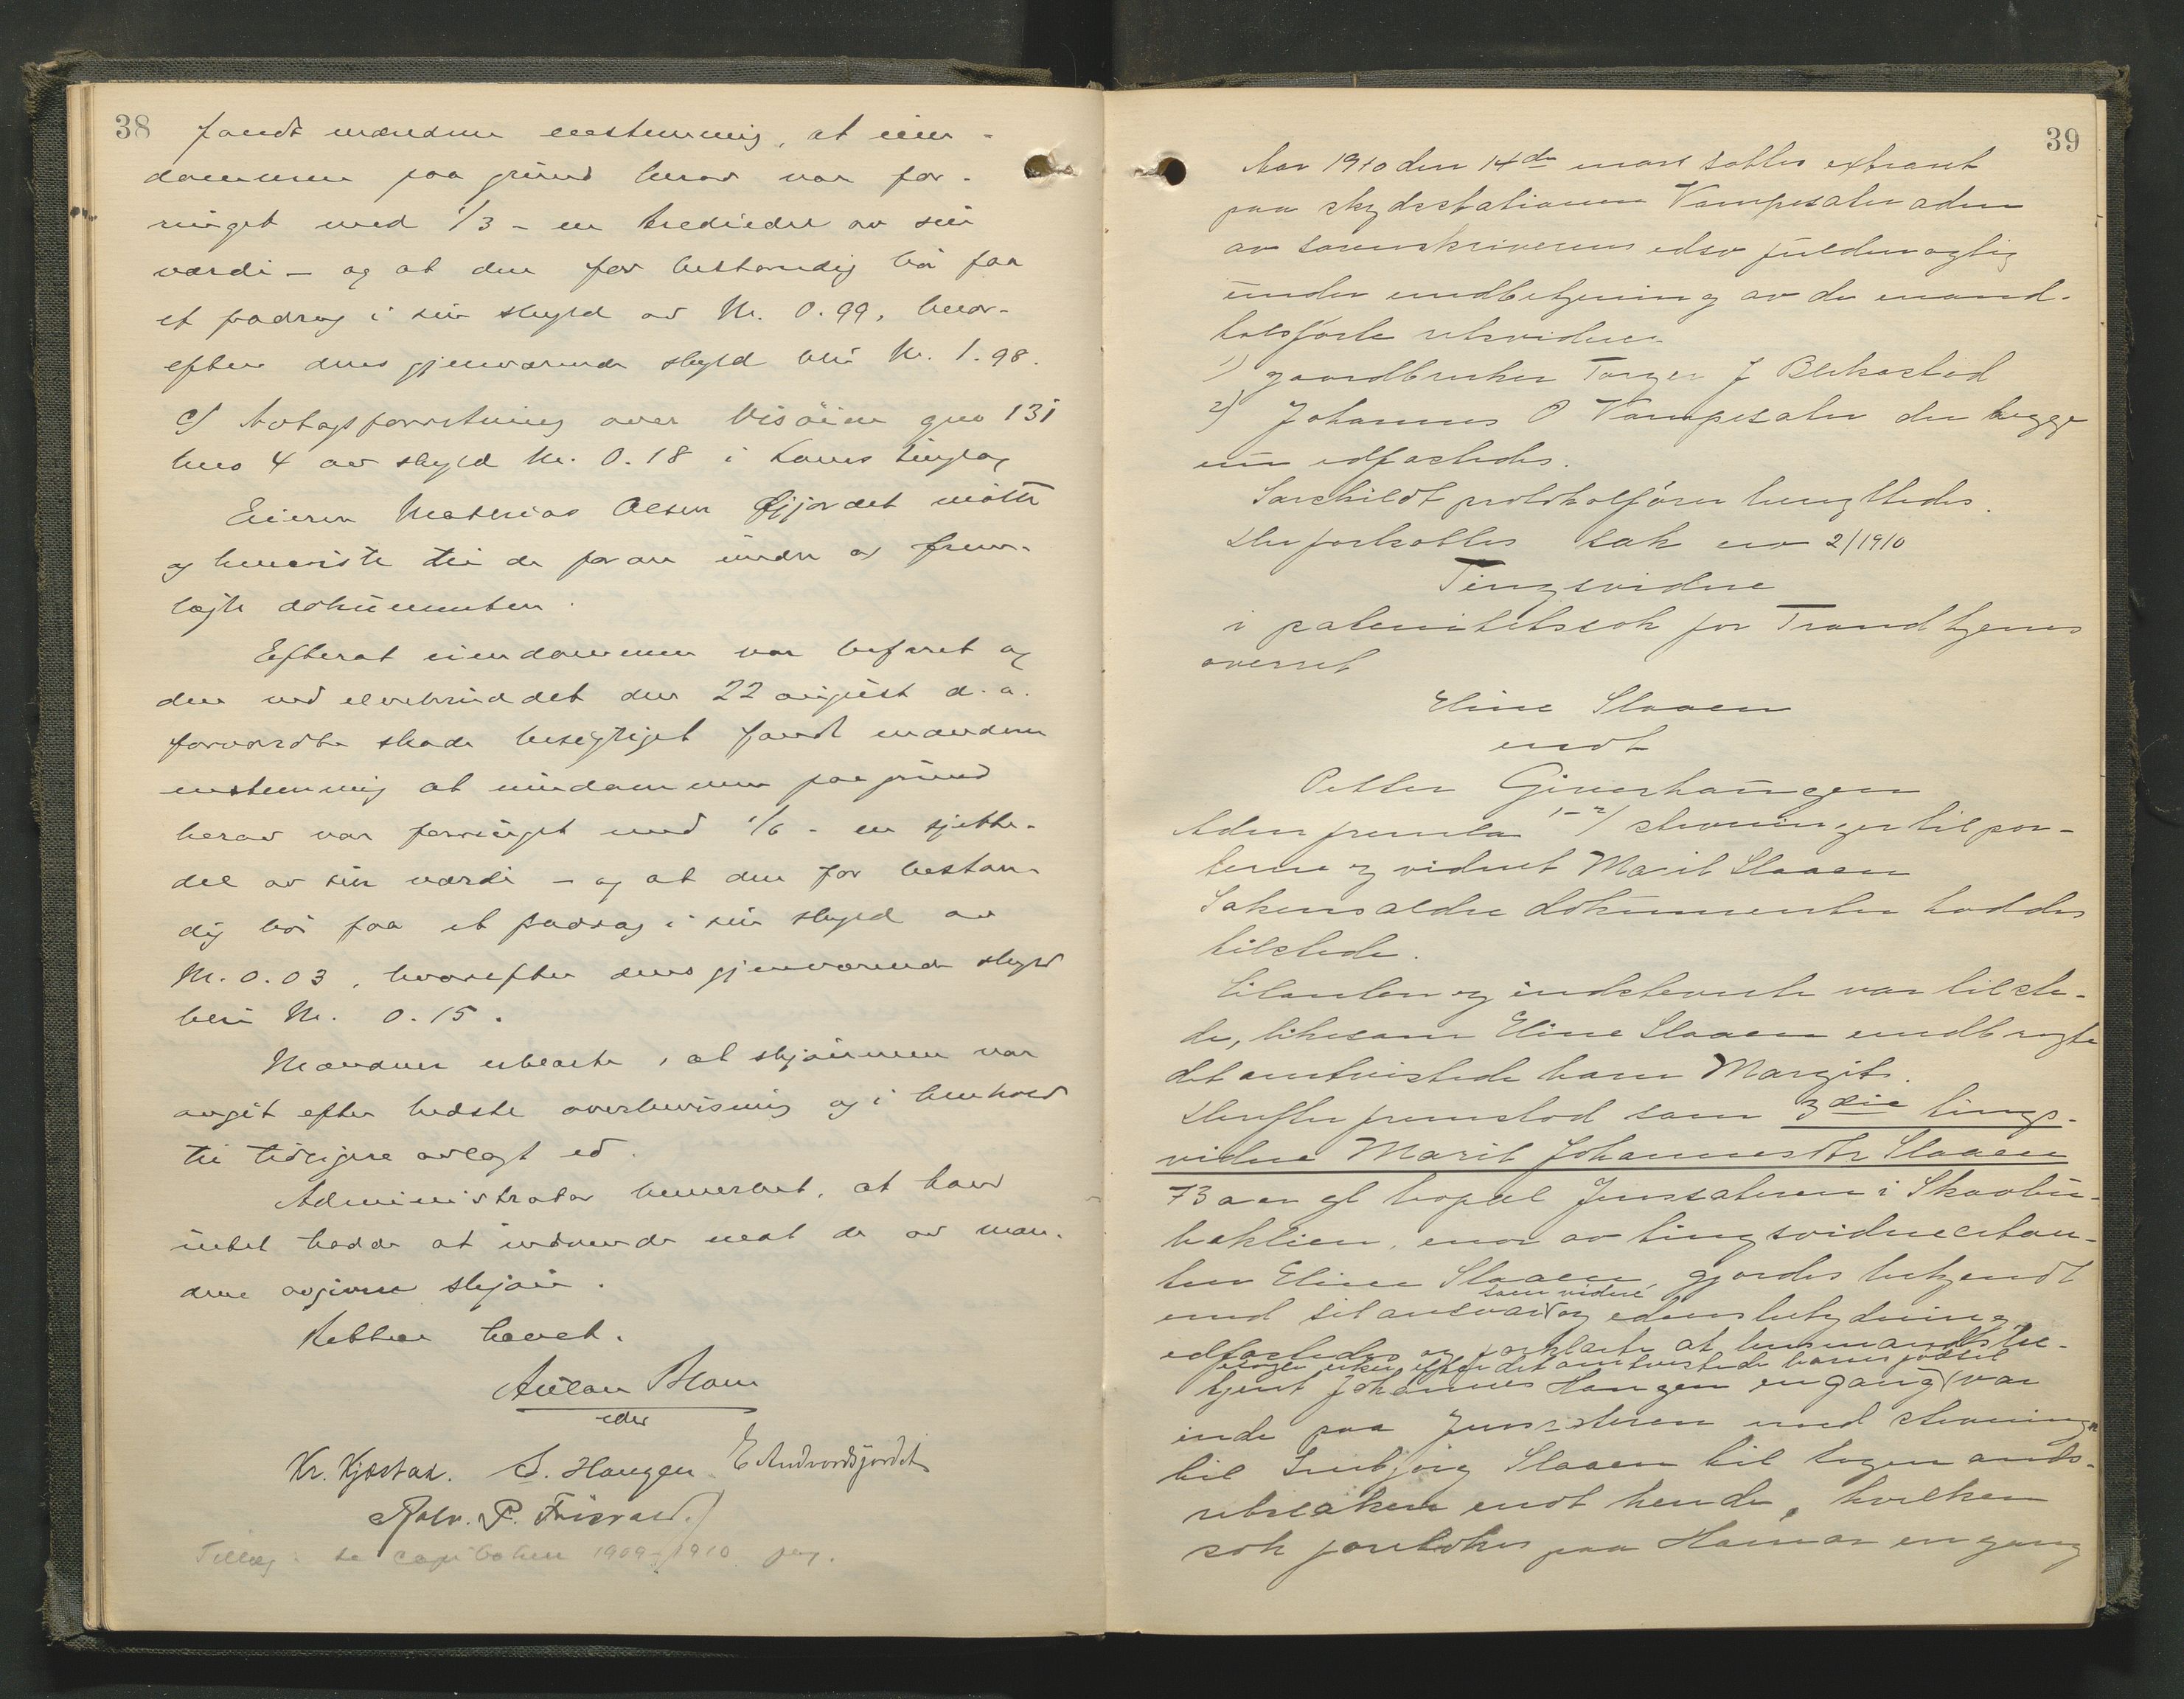 38
fandt mændene enstemmig, at eien-
dommen paa grund herav var for-
ringet med 1/3 - en trediedel av sin
værdi - og at den for bestandig bør faa
et fradrag i sin skyld av Kr. 0.99, hvor-
efter dens gjenværende skyld blir Kr. 1.98.
c) Avtagsforretning over Visöien gno 131
bno 4 av skyld Kr. 0.18 i Loms tinglag
Eieren Mathias Olsen Gjjordet møtte
og henviste til de foran under a) frem-
lagte dokumenter.
Efterat eiendommen var befaret og
den ved elvebruddet den 22 august d.a.
forvoldte skade besigtiget fandt mændene
enstemmig at eiendommen paa grund
herav var forringet med 1/6 - en sjette-
del av sin værdi - og at den for bestan-
dig bør faa et fradrag i sin skyld av
Kr. 0.03, hvorefter dens gjenværende skyld
blir Kr. 0.15.
Mændene erklærte, at skjønnene var
avgit efter bedste overbevisning og i henhold
til tidligere avlagt ed.
Administrator bemerket, at han
intet hadde at indvende mot de av mæn-
dene avgivne skjøn.
Retten hævet.
Autan Blom
edsv
Kr. Kjæstad. S. Haugen E Andvordsjordet
Rolv. P. Frisvold.
Tillæg: se copiboken 1909-1910 pag.
39
Aar 1910 den 14de mars sattes extraret
paa skydsstationen Vampesæter adm
av sorenskriverens edsv fuldmægtig
under medbetjening av de mand-
talsførte retsvidner
1) gaardbruker Torger J Blekastad
2) Johannes O Vampesæter der begge
nu edfæstedes.
Særskildt protokolførsel benyttedes.
Der foretoges sak no 2/1910
Tingsvidne
i paternitetssak for Trondhjems
overret
Eline Slaaen
mot
Petter Giverhaugen
Adm fremla 1-2/ stevninger til par-
terne og vidnet Marit Slaaen
Sakens ældre dokumenter haddes
tilstede.
Citanten og indstevnte var tilste-
de, likesom Eline Slaaen medbragte
det omtvistede barn Margit.
Derefter fremstod som 3die tings-
vidne Marit Johannesdtr Slaaen
73 aar gl bopæl Jenssæteren i Skaabu-
baklien, mor av tingsvidnecitan-
ten Eline Slaaen, gjordes bekjendt
med sit ansvar som vidne og edens betydning,
edfæstedes og forklarte at lensmandsbe-
tjent Johannes Haugen engang nogen uker efter det omtvistede barns fødsel var
inde paa Jenssæteren med stevning
til Snebjørg Slaaen til lagmands-
retssaken mot hende, hvilken
sak foretokes paa Hamar engang